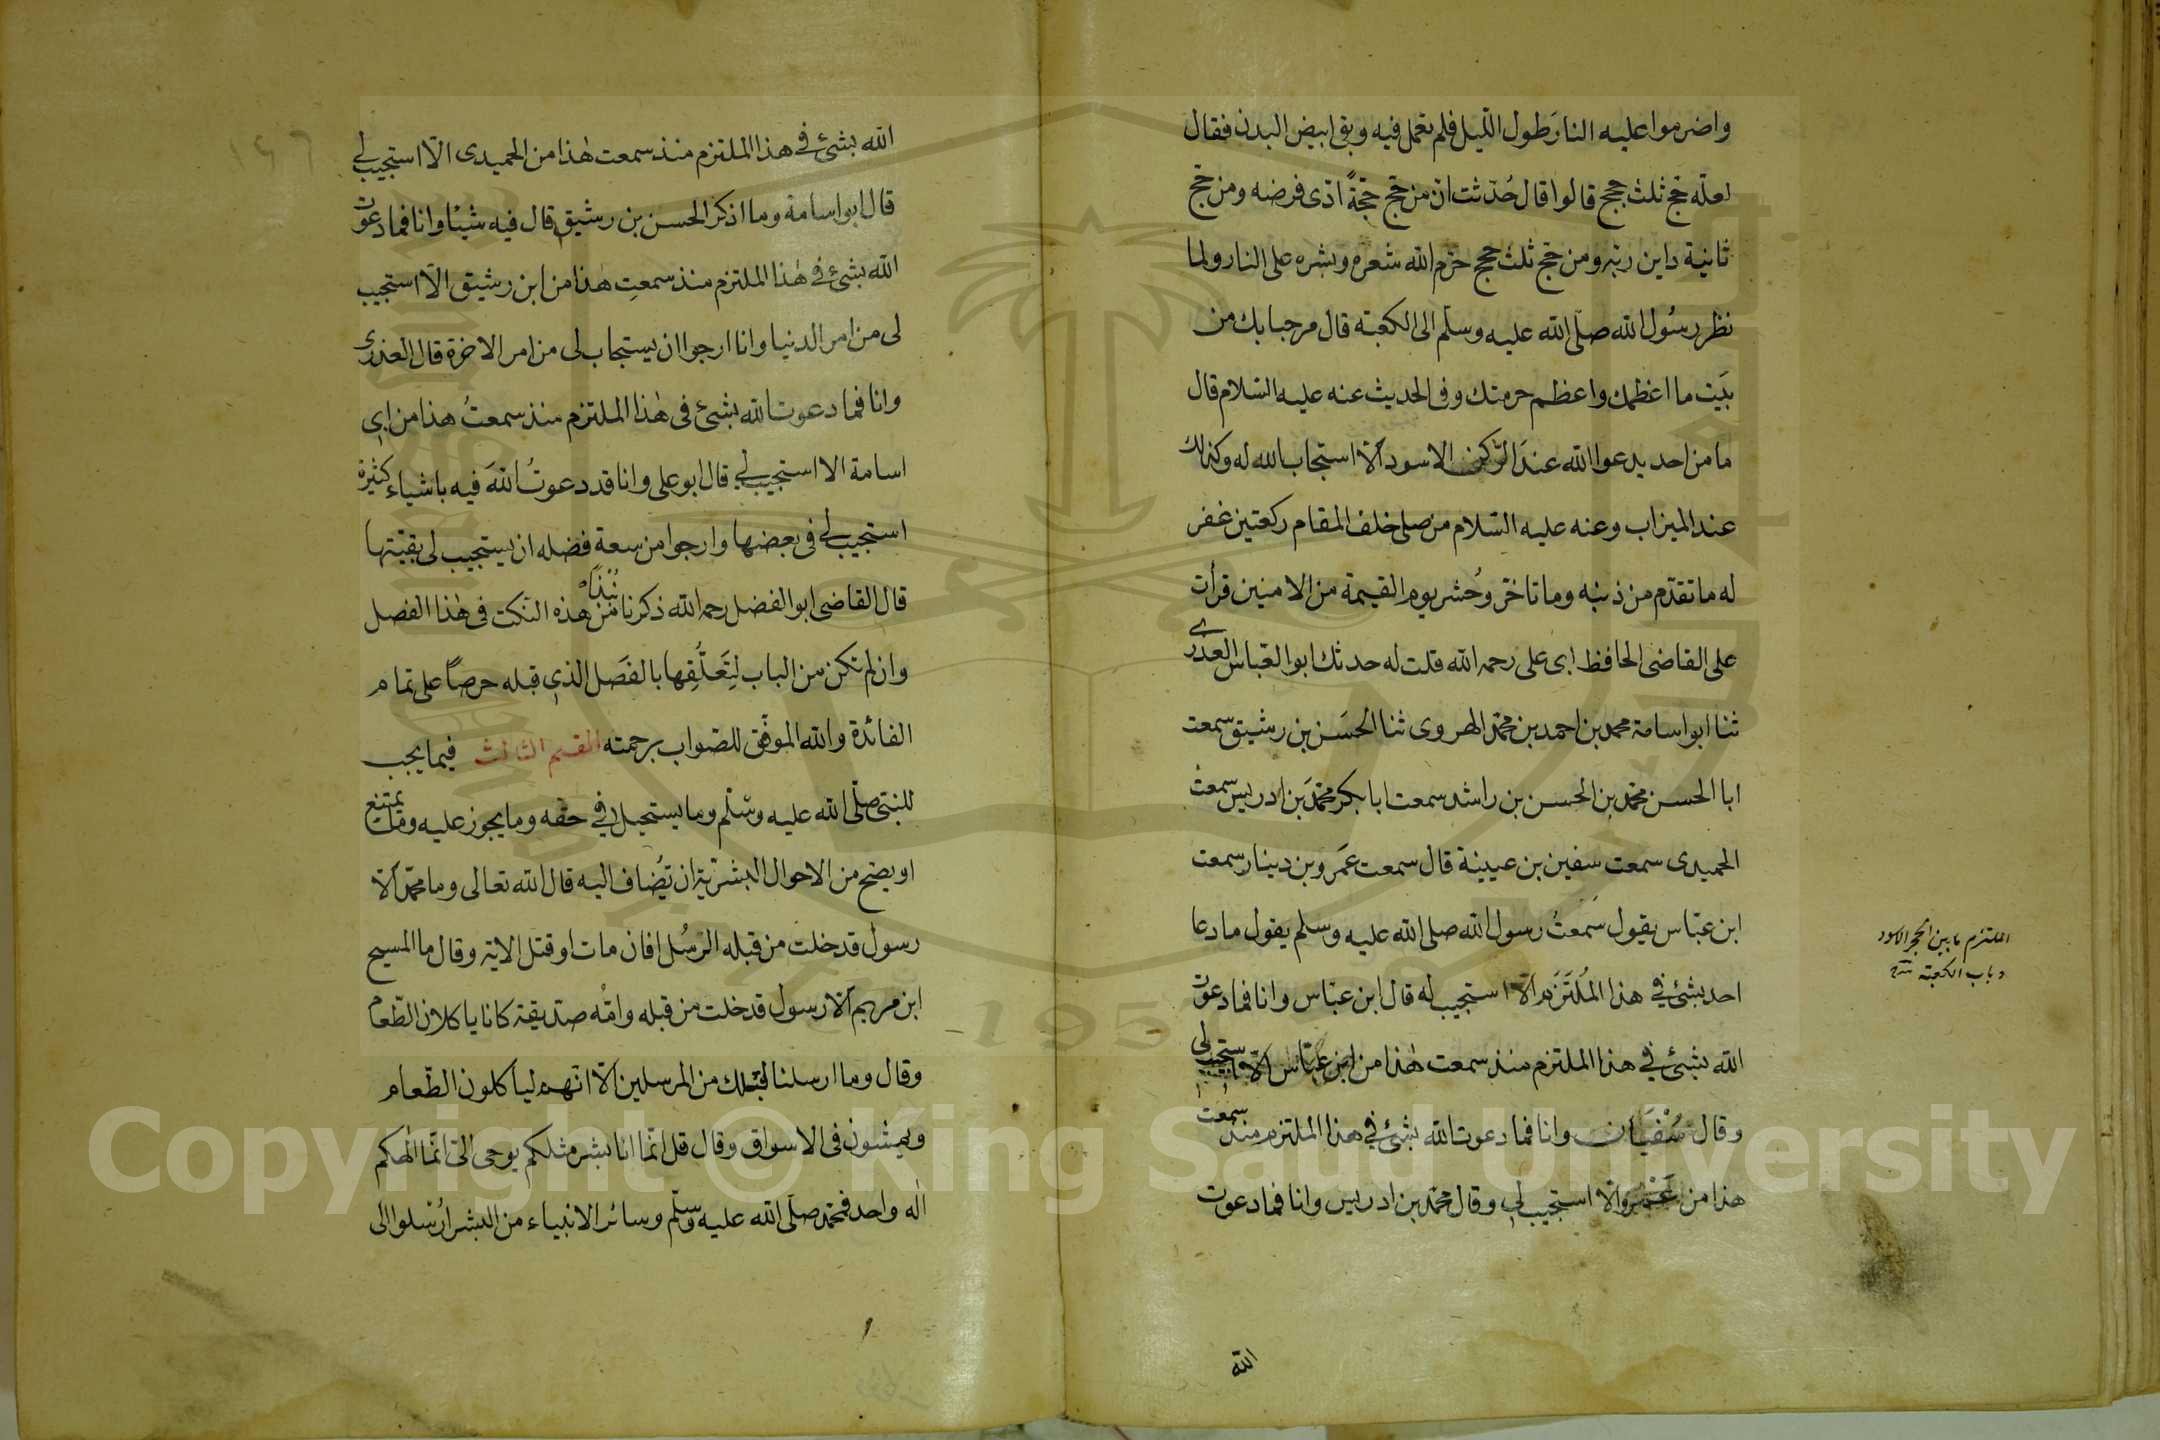 واضرموا عليه النار طول الليل فلم تعمل فيه وبقى ابيض البدن فقال
لعله حج ثلث حجج قالوا قال حُدّثت ان من حج حجّةً ادّى فرضه ومن حج
ثانية داين ربه ومن حج ثلث حجج حرّم الله شعره وبشره على النار ولما
نظر رسُول الله صلّى الله عليه وسلّم الى الكعبة قال مرحبا بك من
بَيت ما اعظمك واعظم حرمتك وفى الحديث عنه عليه السّلام قال
ما من احد يدعوا الله عندَ الرّكن الاسود الّا استجاب الله له وكذلك
عند الميزاب وعنه عليه السّلام من صلى خلف المقام ركعتين غفر
له ما تقدّم من ذنبه وما تاخّر وحُشر يوم القيمة من الامنين قرأت
على القاضى الحافظ ابى على رحمه الله قلت له حدثك ابو العّباس العذرى
ثنا ابو اسامة محمد بن احمد بن محمّد الهروى ثنا الحَسَن بن رشيق سمعت
ابا الحسن محمّد بن الحسن بن راشد سمعت ابا بكر محمّد بَن ادريس سمعت
الحميدى سمعت سفين بن عيينة قال سمعت عَمرو بن دينار سمعت
ابن عبّاس يقول سَمعتُ رسول الله صلى الله عليه وسلم يقول ما دعا
احد بشئ في هذا المُلتَزَم الّا استجيب له قال ابن عبّاس وانا فما دعوت
الله بشئ في هذا الملتزم منذ سمعت هٰذا من ابن عبّاس الّا استجيب لي
وقال سُفْيَان وانا فما دعوت الله بشئ في هذا الملتزم منذ سمعت
هذا من عَمْرو الّا استجيب لي وقال محمّد بن ادريس وانا فما دعوت
الله
الملتزم ما بين الحجر الاسود
وباب الكعبة
الله بشئ في هذا الملتزم منذ سمعت هٰذا من الحميدى الّا استجيب لي
قال ابو اسامة وما اذكر الحسن بن رشيق قال فيه شيئا وانا فما دعوت
الله بشئ في هٰذا الملتزم منذ سمعت هٰذا من ابن رشيق الّا استجيب
لى من امر الدنيا وانا ارجوا ان يستجاب لى من امر الاخرة قال العذرى
وانا فما دعوت الله بشئ فى هٰذا الملتزم منذ سمعتُ هذا من ابى
اسامة الا استجيب لي قال ابو على وانا قد دعوتُ اللهَ فيه باشياء كثيرة
استجيب لي فى بعضها وارجوا من سعة فضله ان يستجيب لى بقيّتها
قال القاضى ابو الفضل رحمه الله ذكرنا نُبَذًا من هذه النّكت فى هٰذا الفصل
وان لم تكن من الباب لِتَعَلُّقِها بالفَصَل الذى قبله حرصًا على تمام
الفائدة والله الموفّق للصّواب برحمته القسم الثالث فيما يجب
للنبّى صلّى الله عليه وسّلم وما يستحيل في حقّه وما يجوز عليه وما يمتنع
او يصّح من الاحوال البشرّية ان يُضاف اليه قال الله تعالى وما محمّد الّا
رسول قد خلت من قبله الرّسُل افان مات او قتل الاية وقال ما المسيح
ابن مريم الّا رسول قد خلت من قبله وامّه صدّيقة كانا ياكلان الطّعام
وقال وما ارسلنا قبلك من المرسلين الّا انّهم لياكلون الطّعام
ويمشون فى الاسواق وقال قل انّما انا بشر مثلكم يوحى الىّ انّما الٰهكم
اله واحد فمحمّد صلّى الله عليه وسلّم وسائر الانبياء من البشر ارُسّلوا الى
Copyright © King Saud University
1957